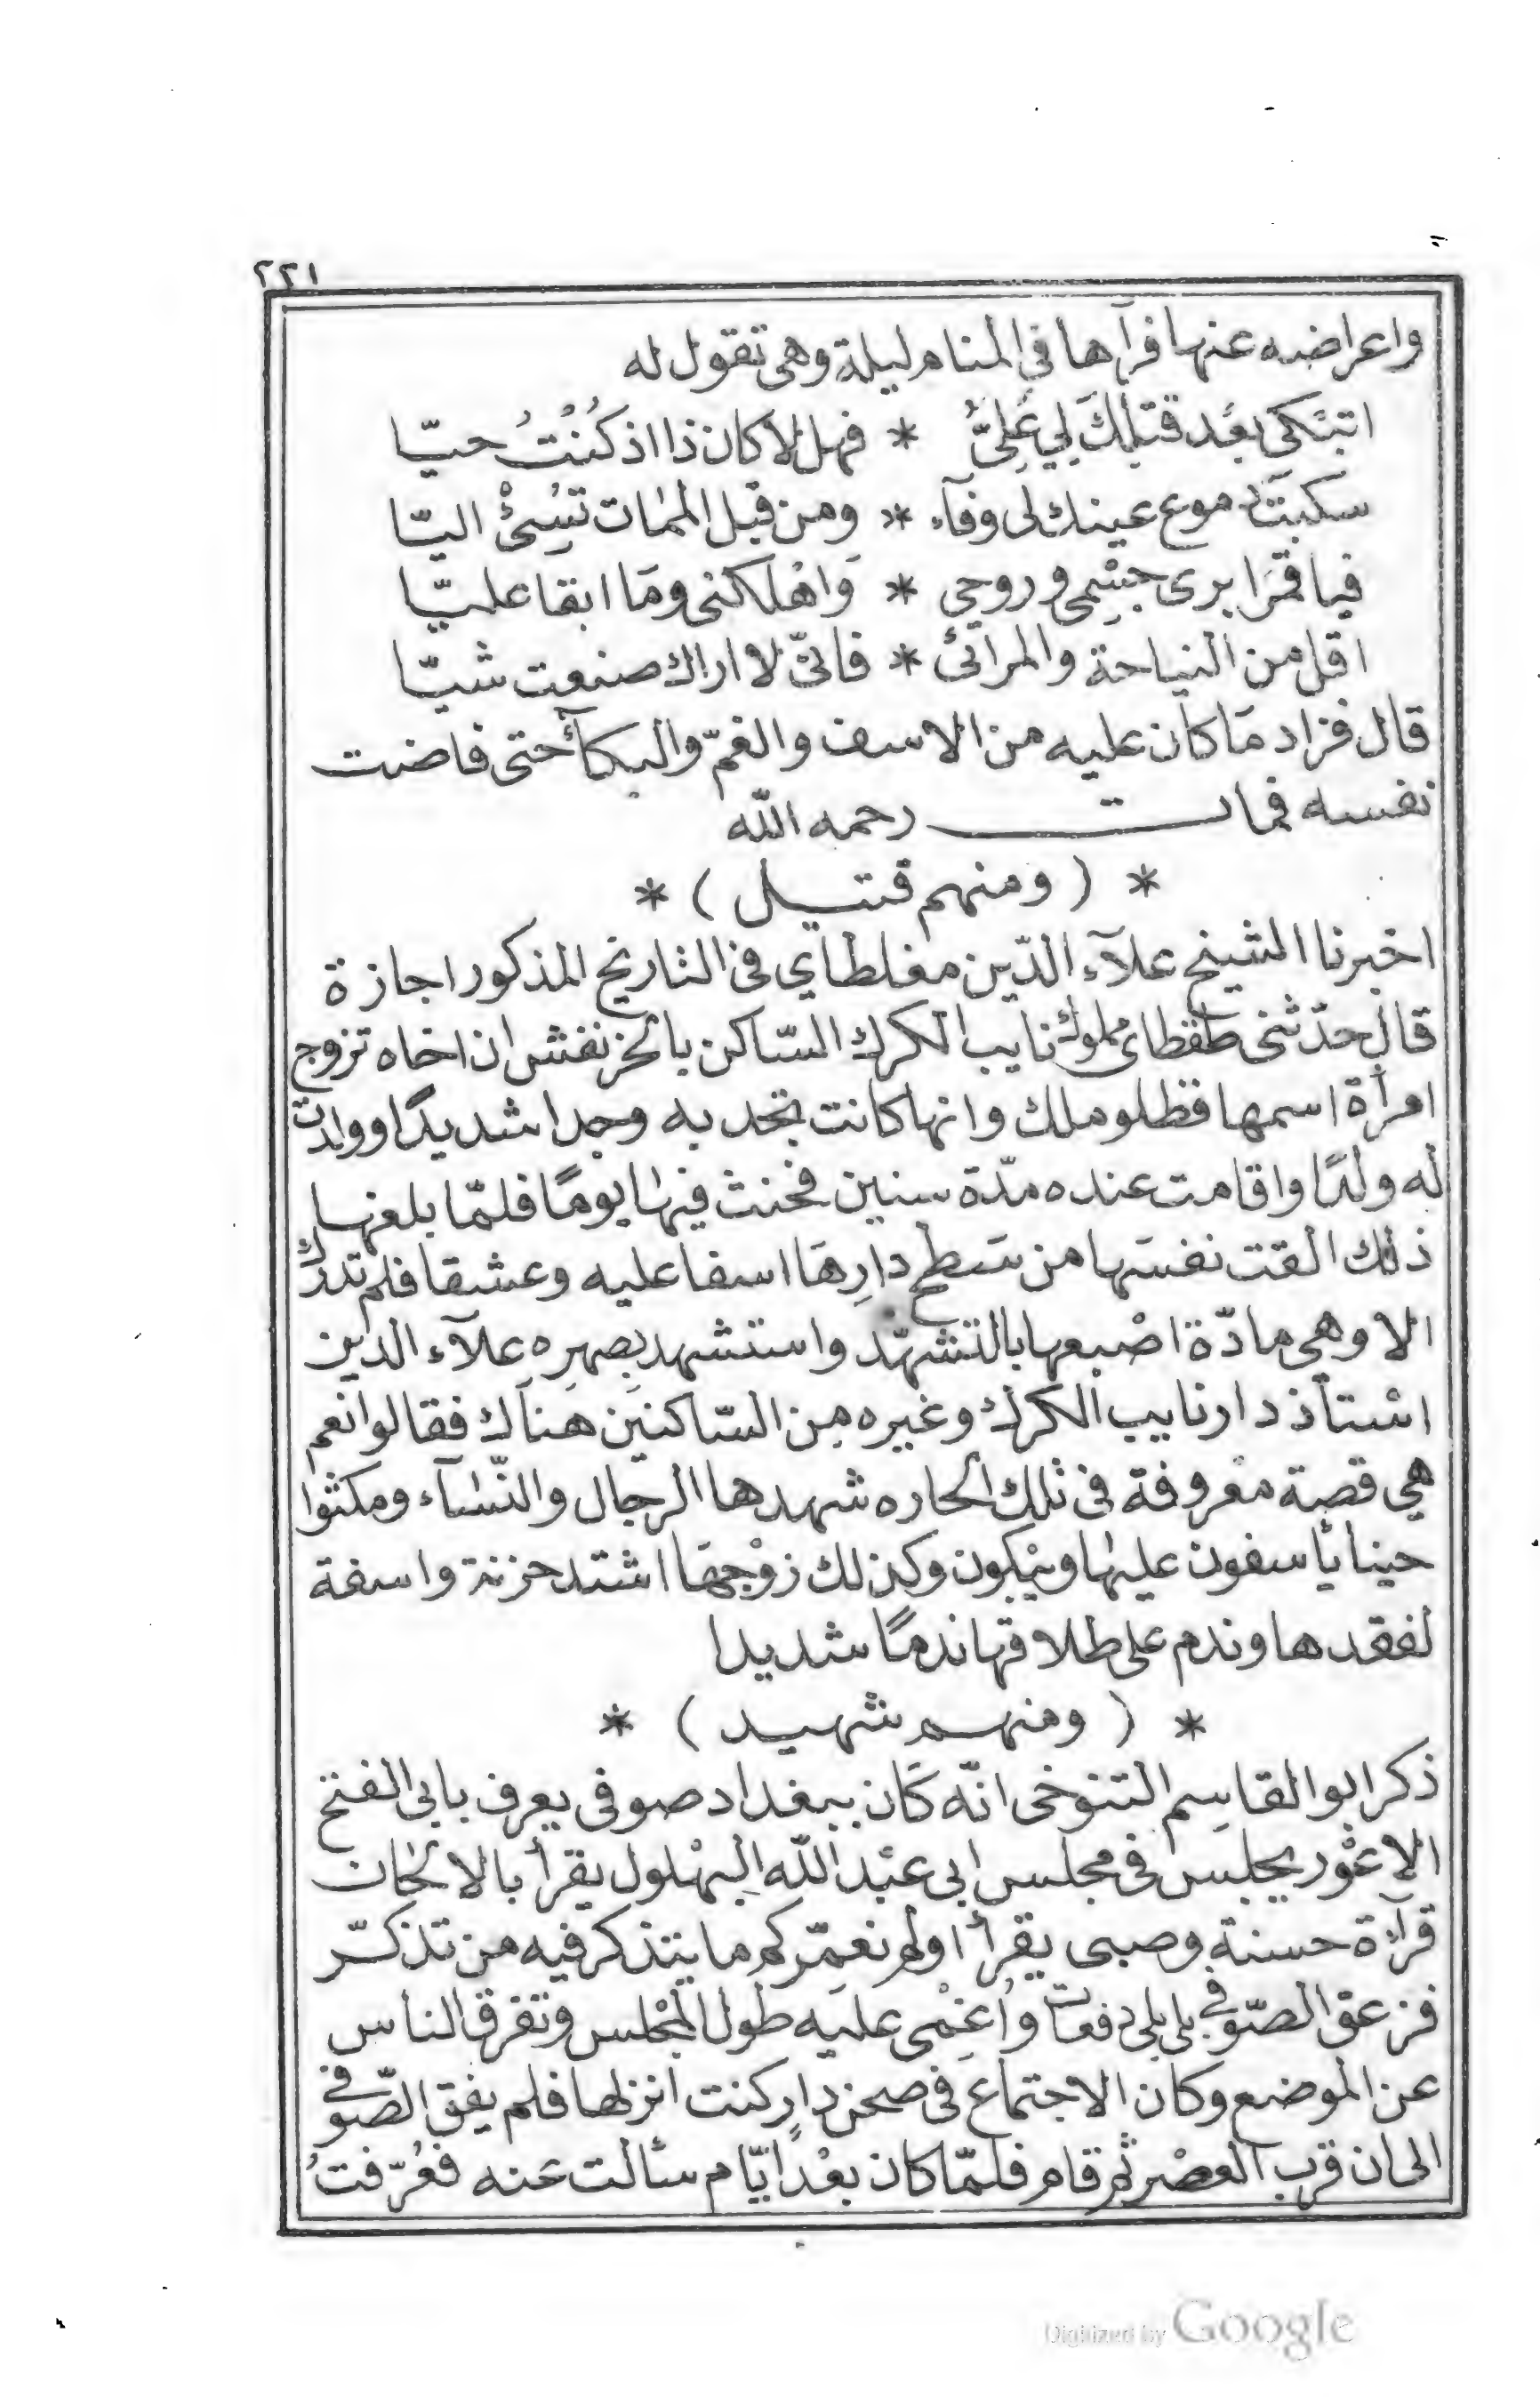 ٢٢١
واعراضه عنها فرآها في المنام ليلة وهى تقول له
اتبكى بعَد قتلكَ لِي عُلِىَّ * فهل لا كان ذا اذ كُنْتُ حيّا
سكبتَ دموع عينك لى وفآء * ومن قبل الممات تسُئْ اليّا
فيا قمرَا برى جسْمِى وروحي * وَاهْلكنى ومَا ابقا عليّا
اقل من النياحة والمراثئ * فانّى لا اراك صنعت شيّا
قال فزاد مَا كان عليه من الاسف والغمّ والبكآء حتى فاضت
نفسه فمات رحمه الله
* ( ومنهم قتيل ) *
اخبرنا الشيخ علآء الدّين مغلطاي فى التاريخ المذكور اجازة
قال حدّثنى طقطاى مملوك نايب الكرك السّاكن بالخرنفش ان اخاه تزوج
امرأة اسمها قطلوملك وانها كانت تجد به وجدا شديدًا وولدت
له ولدًا واقامت عنده مدّة سنين فحنث فيهَا يومًا فلمّا بلغها
ذلك القت نفسَها من سَطح دارِهَا اسفا عليه وعشقا فلم تدرك
الا وهى مادّة اصْبعها بالتشهّد واستشهد بِصهرِه علآء الدين
اسْتاذ دار نايب الكرك وغيره مِن السّاكنين هناك فقالوا نعم
هي قصة معْروفة فى تلك الحاره شهدها الرجال والنّسَآء ومكثوا
حينا يأسفون عليهَا ويبْكون وكذلك زوْجهَا اشتد حزنة واسفة
لفقدها وندم على طلاقها ندمًا شديدا
* ( ومنهم شهيد ) *
ذكر ابو القاسِم التنوخى انّه كَان ببغداد صوفى يعرف بابى الفتح
الاعْور يجلس فى مجلس ابى عبْد الله البهْلول يقرأ بالالحَان
قرآءة حسنة وصبى يقرأ اولم نعمّركم ما يتذكر فيه من تذكّر
فزعق الصّوفي بلى بلى دفعات واُغِمْى عليَه طول المجْلس وتفرق الناس
عن الموضع وكان الاجتماع فى صحن دارٍ كنت انزلها فلم يفق الصّوفي
الى ان قرب العصْر ثم قام فلمّا كان بعْد ايّام سألت عَنه فعُرّفتُ
Digitized by Google